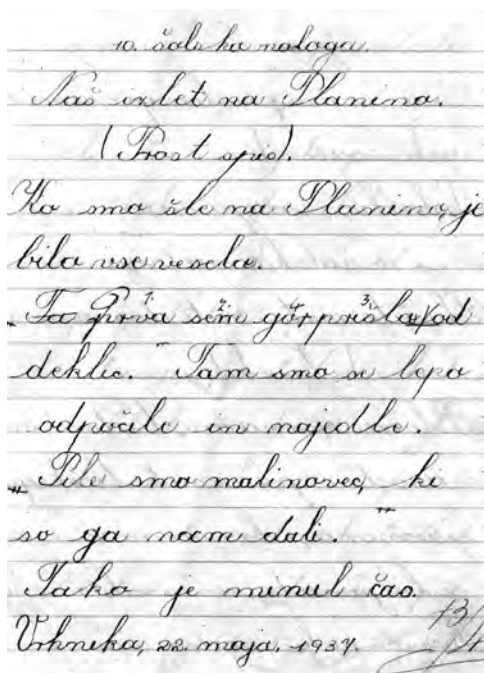 10. šolska naloga.
Naš izlet na Planino.
(Prost spis).
Ko smo šle na Planino, je
bilo vse veselo.
„Ta Prva sem gor prišla od
deklic." Tam smo se lepo
odpočile in najedle.
„Pile smo malinovec, ki
so ga nam dali."
Tako je minul čas.
Vrhnika, 22. maja. 1937.